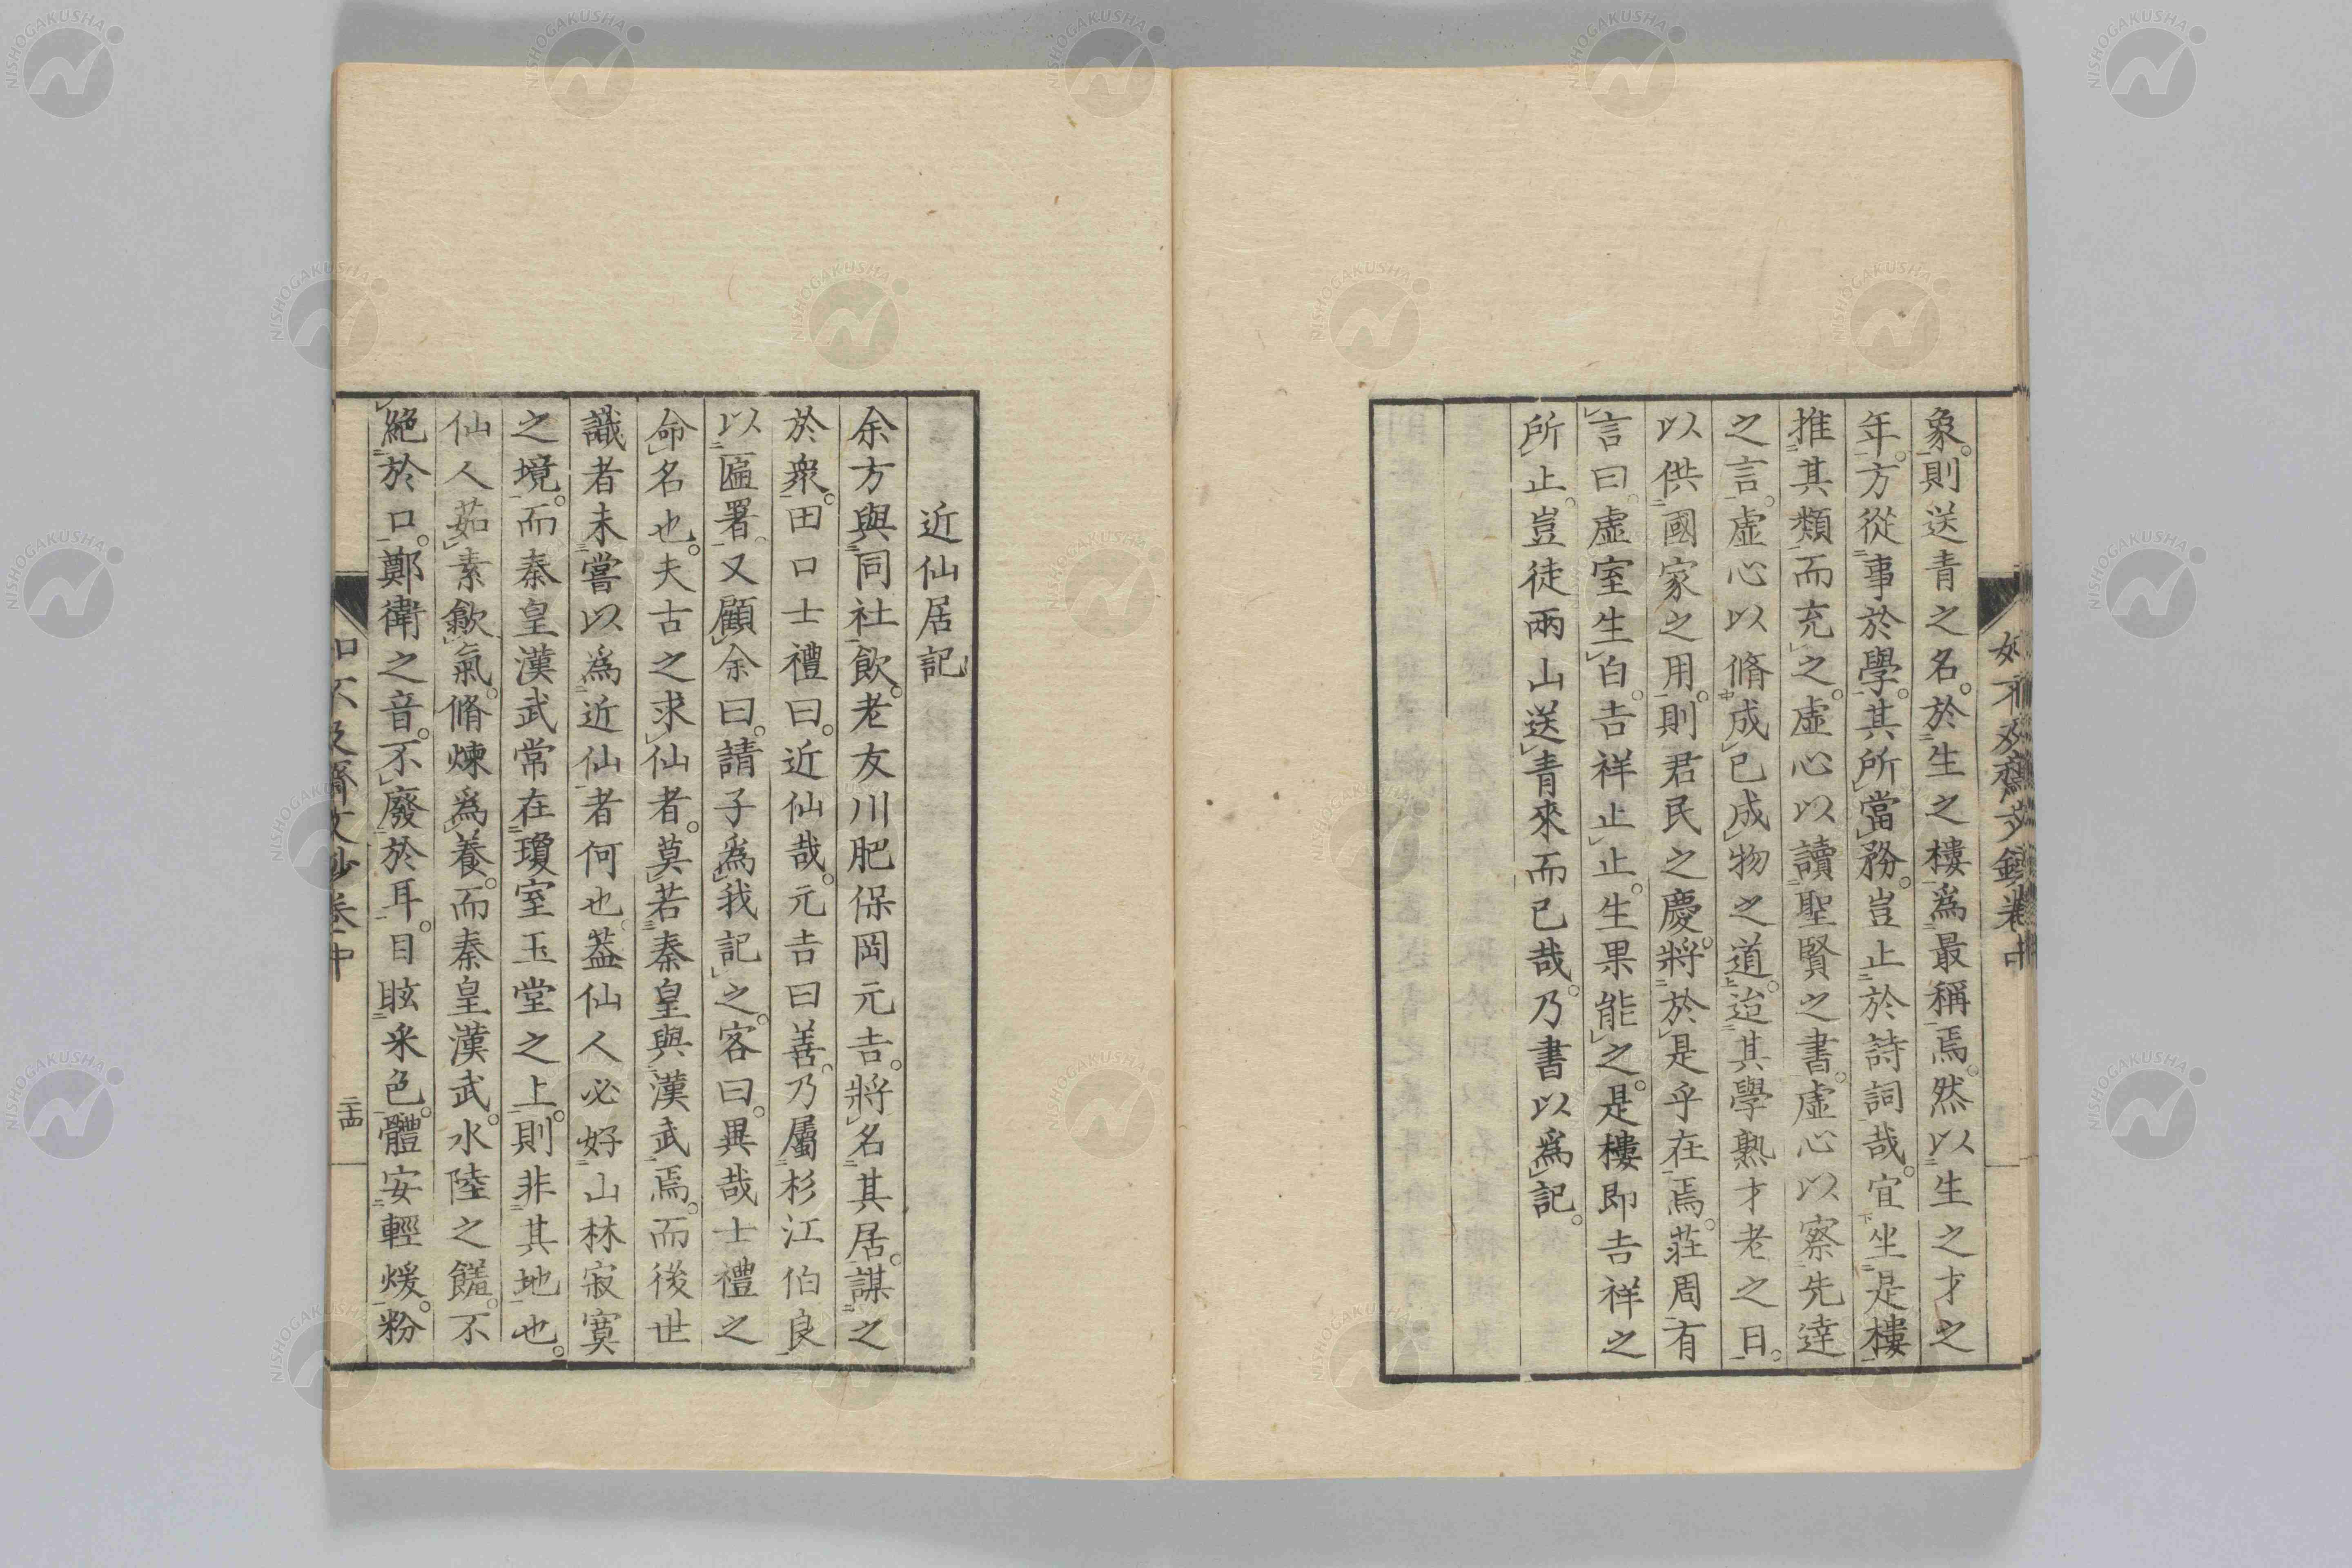 象。則送青之名。於生之樓爲最稱焉。然以生之才之
年。方從事於學。其所當務。豈止於詩詞哉。宜坐是樓
推其類而充之。虛心以讀聖賢之書。虛心以察先達
之言。虛心以脩成已成物之道。迨其學熟才老之日。
以供國家之用。則君民之慶。將於是乎在焉。莊周有
言曰。虛室生白。吉祥止止。生果能之。是樓即吉祥之
所止。豈徒兩山送青來而已哉。乃書以爲記。
近仙居記
余方與同社飲。老友川肥保岡元吉。將名其居。謀之
於衆。田口士禮曰。近仙哉。元吉曰善。乃屬杉江伯良
以匾署。又顧余曰。請子爲我記之。客曰。異哉士禮之
命名也。夫古之求仙者。莫若秦皇與漢武焉。而後世
識者未嘗以爲近仙者何也。葢仙人必好山林寂寞
之境。而秦皇漢武常在瓊室玉堂之上。則非其地也。
仙人茹素歙氣。脩煉爲養。而秦皇漢武。水陸之饈。不
絕於口。鄭衛之音。不廢於耳。目眩釆色。體安輕煖。粉
如不及齋文鈔卷中
二十四
NISHOGAKUSHA